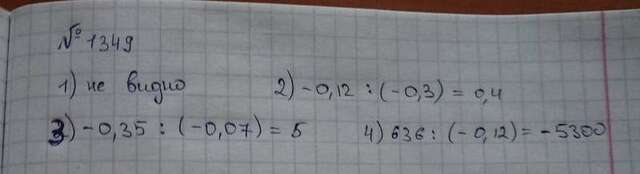 № 1349
1) не видно 2) -0,12 : (-0,3) = 0,4
3) -0,35 : (-0,07) = 5 4) 636 : (-0,12) = -5300